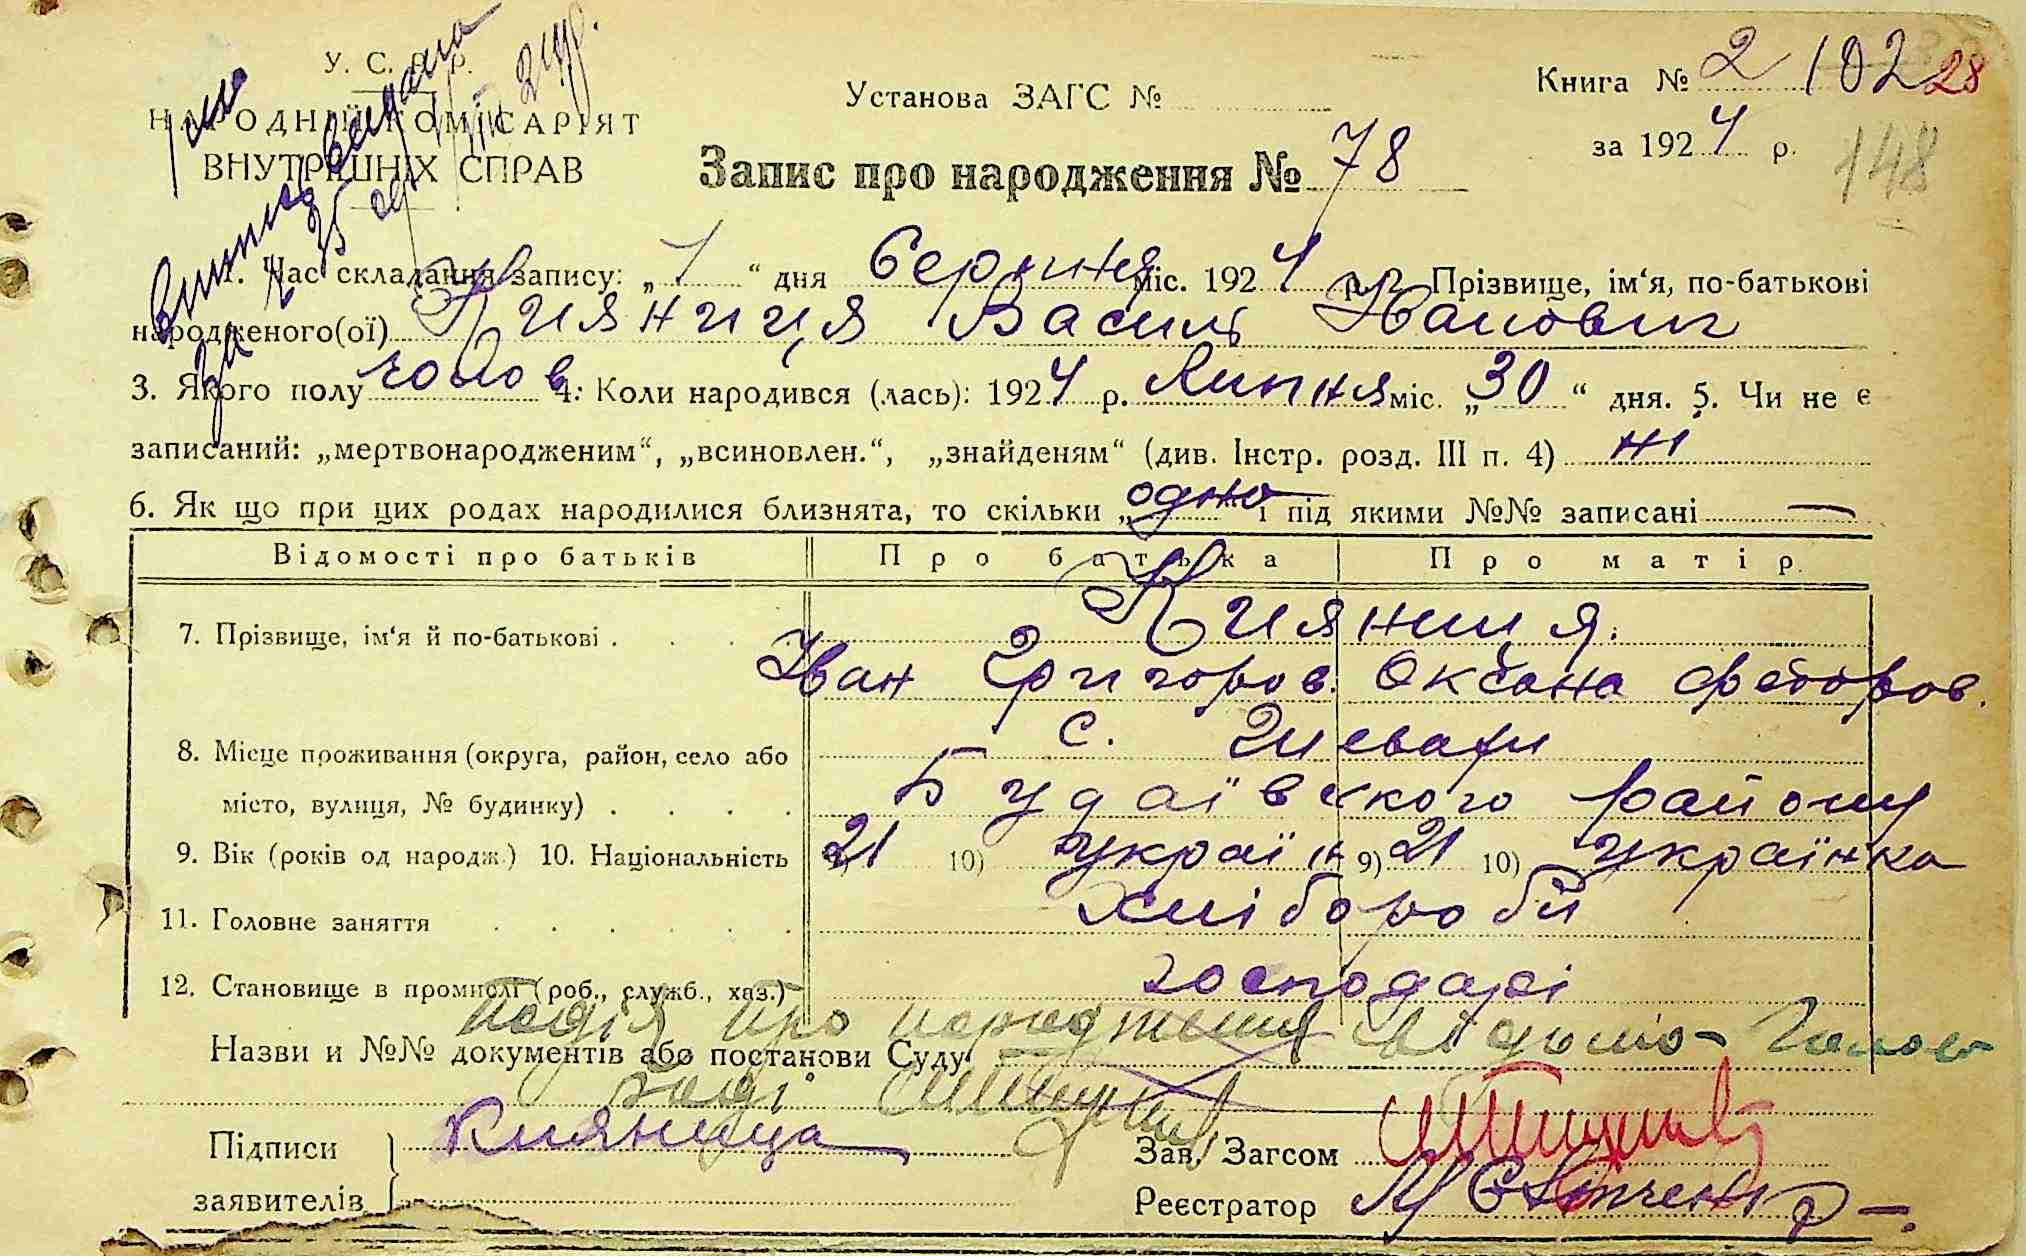 У. С. Р. Р.
НАРОДНІЙ КОМІСАРІЯТ
ВНУТРІШНІХ СПРАВ
Установа ЗАГС №
Книга № 2 102 28
за 1924 р. 148
Запис про народження № 78
1. Час складання запису: „1“ дня Серпня міс. 1924 р. 2. Прізвище, ім‘я, по-батькові
народженого(ої) Кияниця Василь Иванович
3. Якого полу чолов 4. Коли народився (лась): 1924 р. Липня міс. „30“ дня. 5. Чи не є
записаний: „мертвонародженим“, „всиновлен.“, „знайденям“ (див. Інстр. розд. III п. 4) ні
6. Як що при цих родах народилися близнята, то скільки „одно“ і під якими №№ записані —
Відомості про батьків Про батька Про матір
7. Прізвище, ім‘я й по-батькові . . . Кияниця.
Іван Григоров. Оксана Федоров.
8. Місце проживання (округа, район, село або с.
місто, вулиця, № будинку) . . . . Будаївського району
9. Вік (років од народж.) 10. Національність 21 10) україн 9) 21 10) українка
11. Головне заняття . . . . . . Хлібороби
12. Становище в промислі (роб., служб., хаз.) господарі
Подія про народження відомо - Голов
Назви и №№ документів або постанови Суду
Ради
Підписи Кияница Зав. Загсом
заявителів Реєстратор